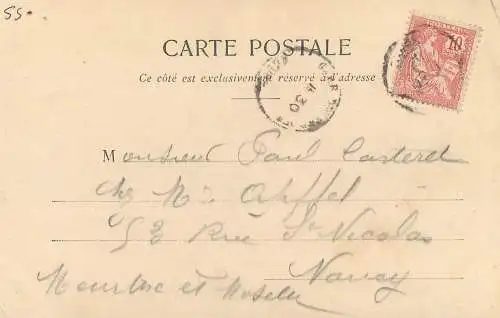 55.
CARTE POSTALE
Ce côté est exclusivement réservé à l'adresse
10
Monsieur Paul Casteret
chez Mr Apffel
52 Rue St Nicolas
Nancy
Meurthe et Moselle